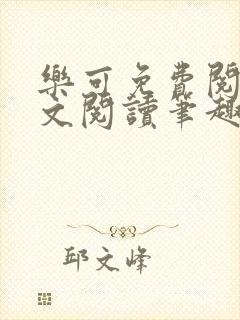 樂可免費閱
文閱讀筆趣
邱文峰